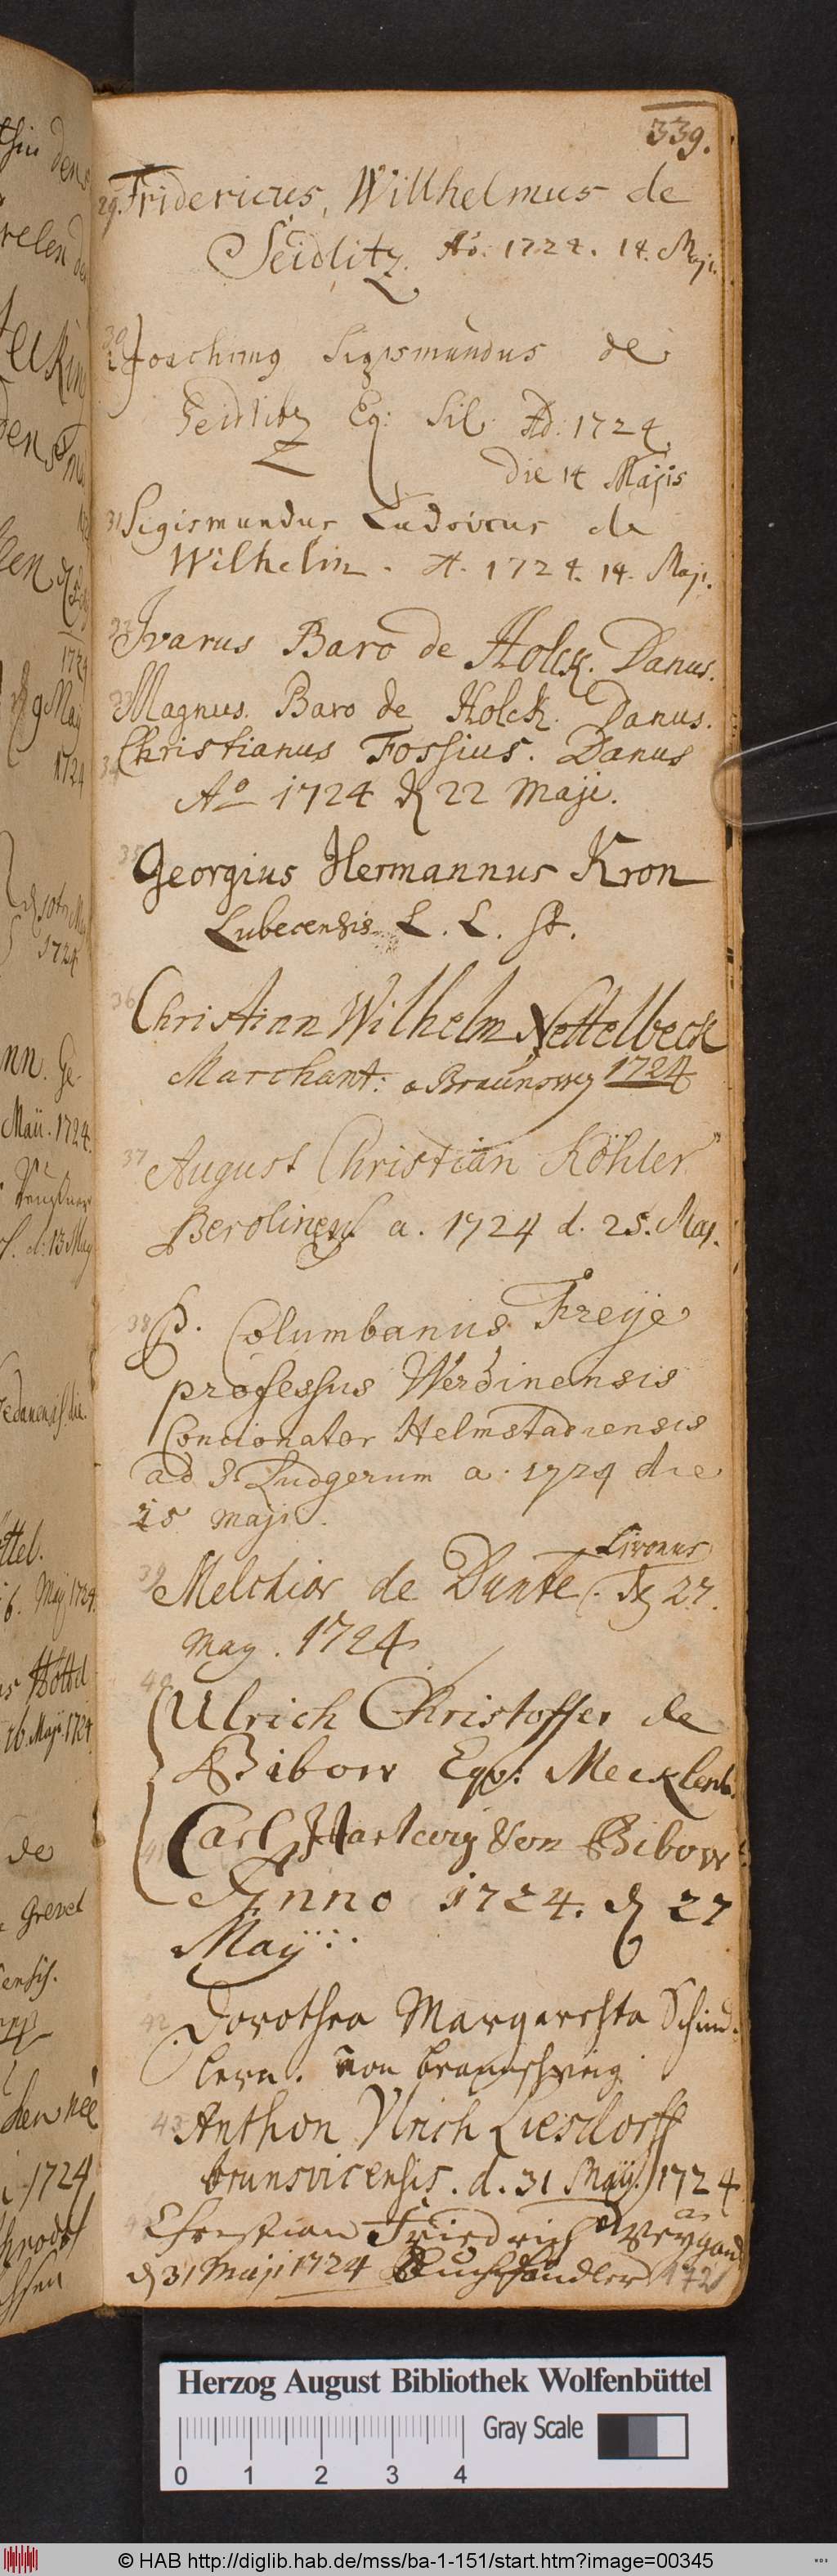 339.
29. Fridericus, Willhelmus de
Seidlitz. Ao: 1724. 14. Maji.
30 Joachimg Sigismundus de
Seidlitz Eq: Sil: Ad: 1724
die 14 Majis
31 Sigismundus Ludovicus de
Wilhelm. A. 1724. 14. Maji.
32 Ivarus Baro de Holck. Danus.
33 Magnus. Baro de Holck. Danus.
34 Christianus Fossius. Danus
Ao 1724 d 22 Maji.
35 Georgius Hermannus Kron
Lubecensis L. L. St.
36 Christian Wilhelm Nettelbeck
Marchant: a Braunswey 1724
37 August Christian Köhler
Berolinens. a. 1724 d. 25. Maj.
38 P. Columbanus Freije
professus Werdinensis
Concionator Helmstadiensis
ad S. Ludgerum a. 1724 die
25 maji.
Livonus
39 Melchior de Dunte. d 27.
May. 1724
40 Ulrich Christoffer de
Bibow Equ: Mecklenb.
41 Carl Hartwig Von Bibow
Anno 1724. d 27
Maÿ
42 Dorothea Margarehta Schind-
lern. von braunschweig
43 Anthon Ulrich Liesdorff
brunsvicensis. d. 31 Maÿ. 1724
44 Christian Friedrich Weygand
d 31 Maji 1724 Buchhändler
Herzog August Bibliothek Wolfenbüttel
Gray Scale
0 1 2 3 4
© HAB http://diglib.hab.de/mss/ba-1-151/start.htm?image=00345